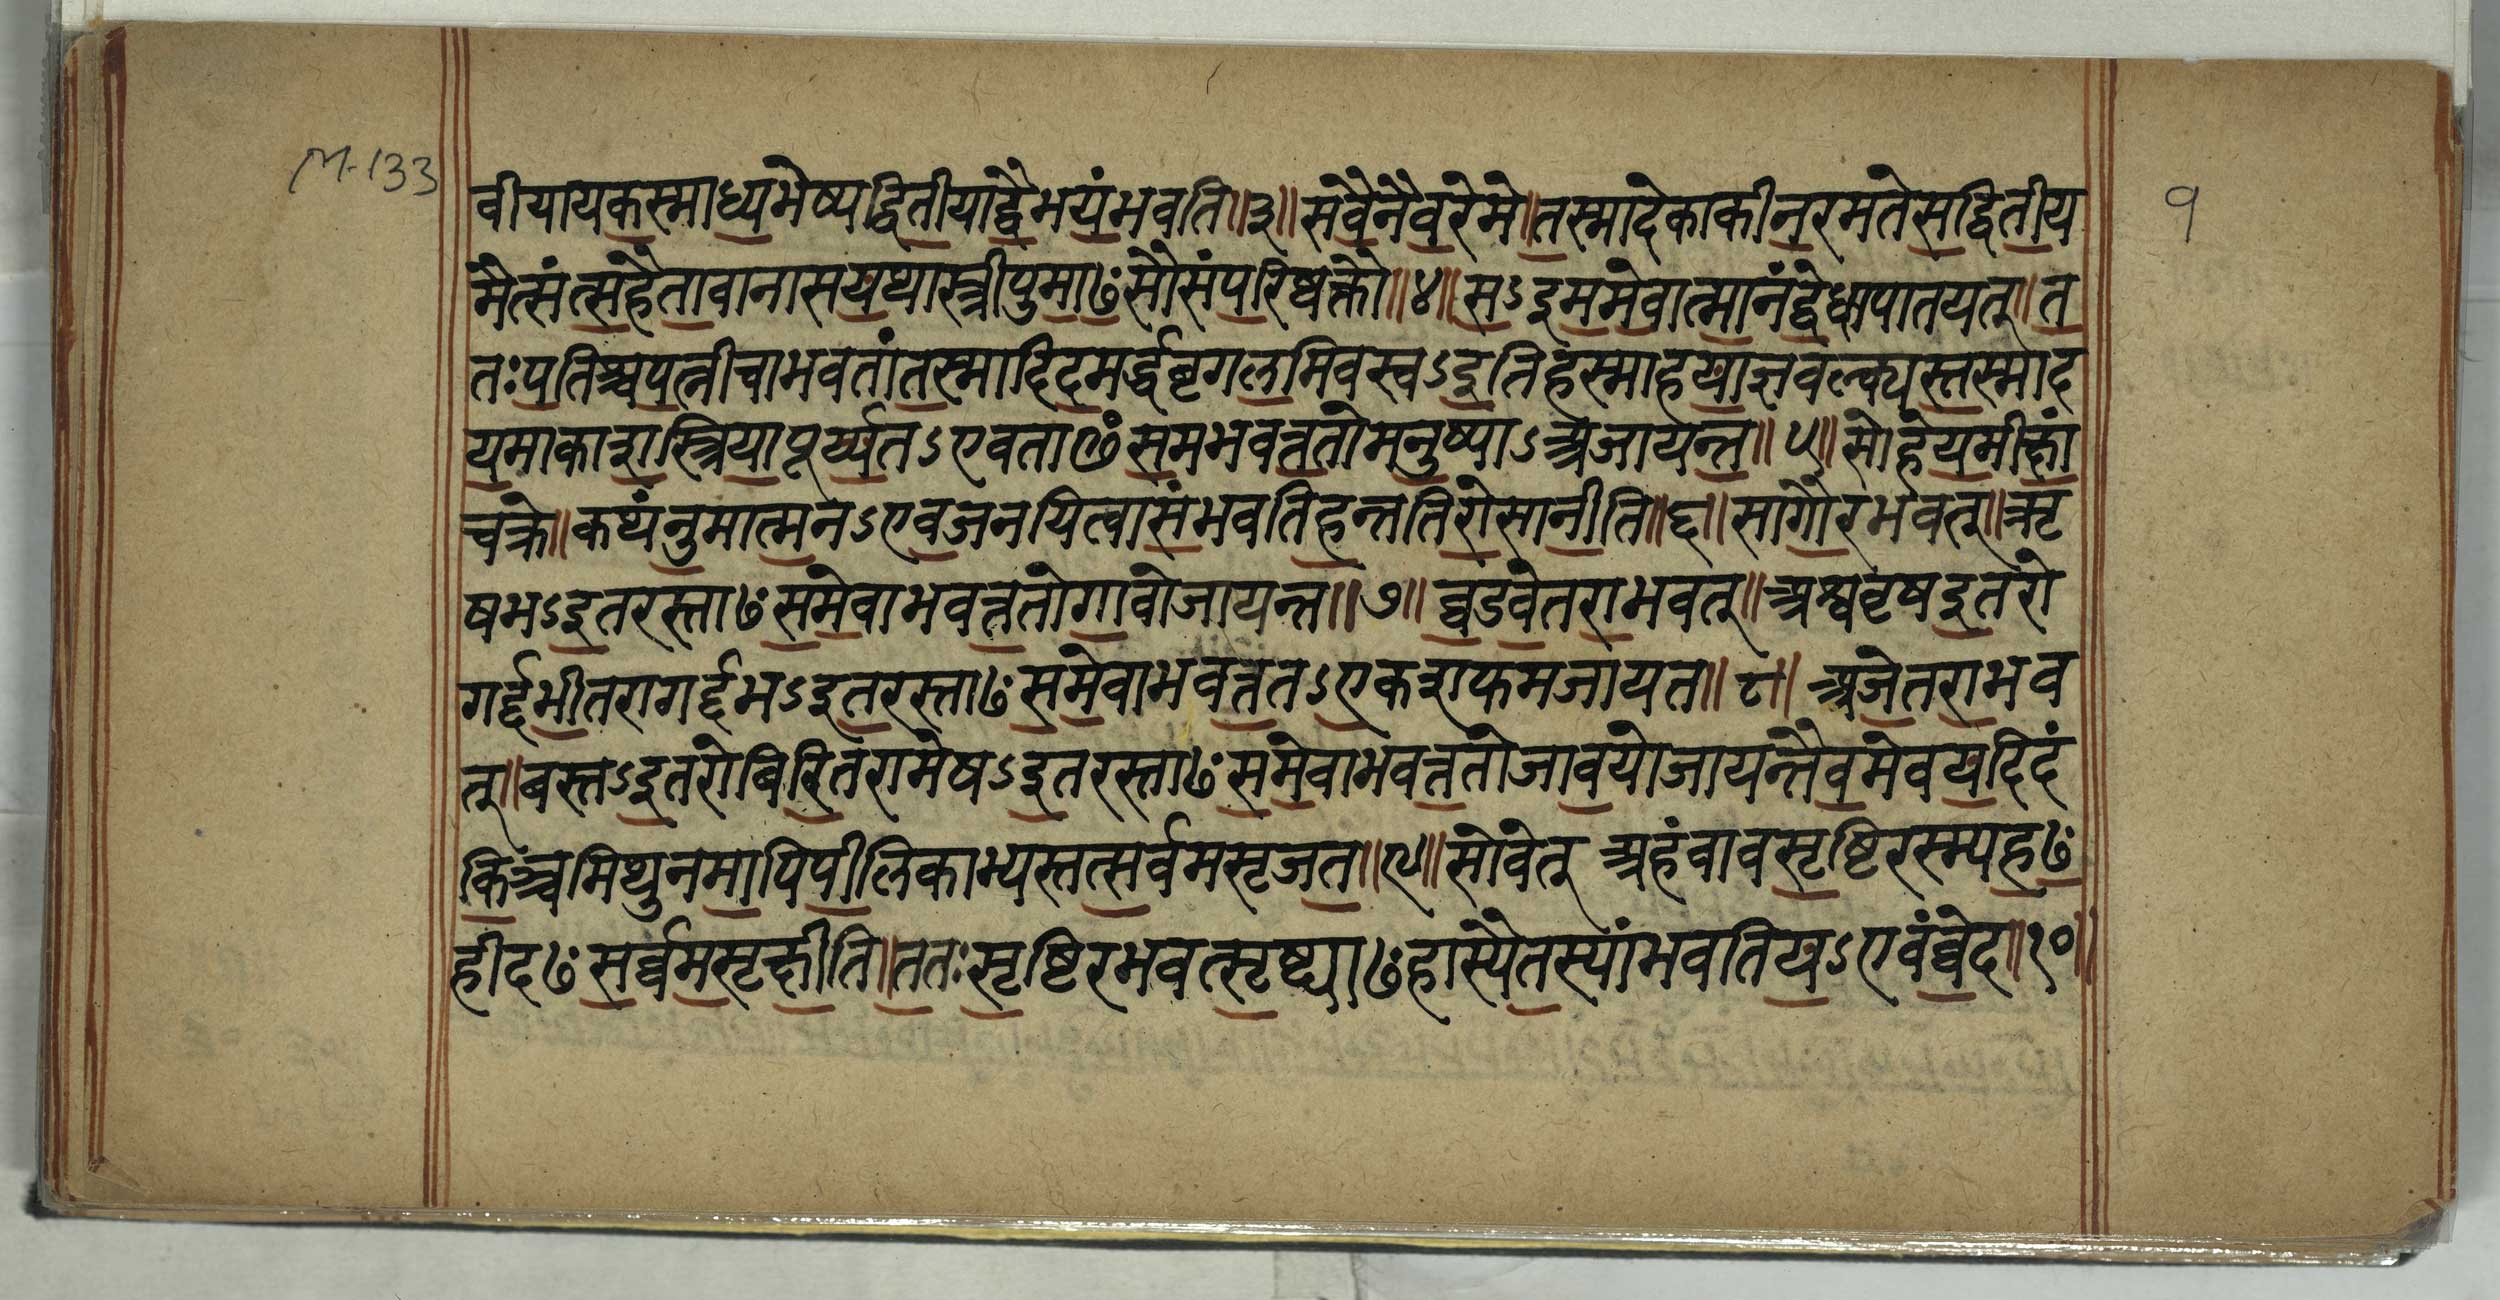 M-133
१
वीयायकस्माध्यभेष्यद्वितीयाद्वैभयंभवति॥३॥सवैनैवरेमे॥तस्मादेकाकीनरमतेसद्वितीय
मैत्संत्सहैतावानासयथास्त्रीपुमाꣳसौसंपरिष्वक्तौ॥४॥सऽइममेवात्मानंद्वेधापातयत्॥त
तःपतिश्चपत्नीचाभवतांतस्मादिदमर्द्धबृगलमिवस्वऽइतिहस्माहयाज्ञवल्क्यस्तस्माद
यमाकाशस्त्रियापूर्य्यतऽएवताꣳसमभवत्ततोमनुष्याऽअजायन्त॥५॥सोहेयमीक्षां
चक्रे॥कथंनुमात्मनऽएवजनयित्वासंभवतिहन्ततिरोसानीति॥६॥सागौरभवत्॥ऋ
षभऽइतरस्ताꣳसमेवाभवत्ततोगावोजायन्त॥७॥व्वडवेतराभवत्॥अश्ववृषइतरो
गर्द्दभीतरागर्द्दभऽइतरस्ताꣳसमेवाभवत्ततऽएकशफमजायत॥८॥अजेतराभव
त्॥बस्तऽइतरोबिरितरामेषऽइतरस्ताꣳसमेवाभवत्ततोजावयोजायन्तैवमेवयदिदं
किञ्चमिथुनमापिपीलिकाभ्यस्तत्सर्वमसृजत॥९॥सोवेत् अहंवावसृष्टिरस्म्यहꣳ
हीदꣳसर्व्वमसृक्षीति॥ततःसृष्टिरभवत्सृष्ट्याꣳहास्यैतस्यांभवतियऽएवंव्वेद॥१०॥